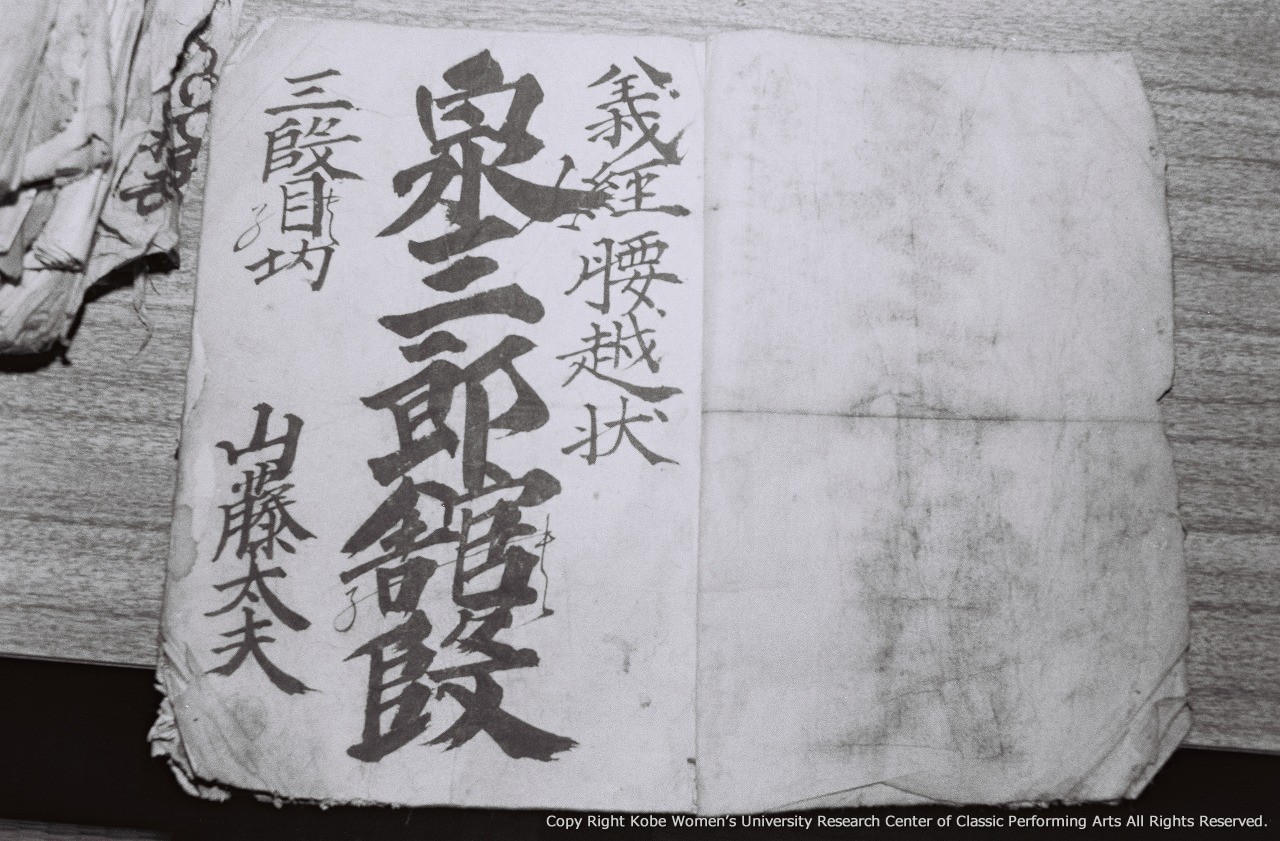 義經腰越状
泉三郎館段
三段目切
山藤太夫
Copy Right Kobe Women's University Research Center of Classic Performing Arts All Rights Reserved.